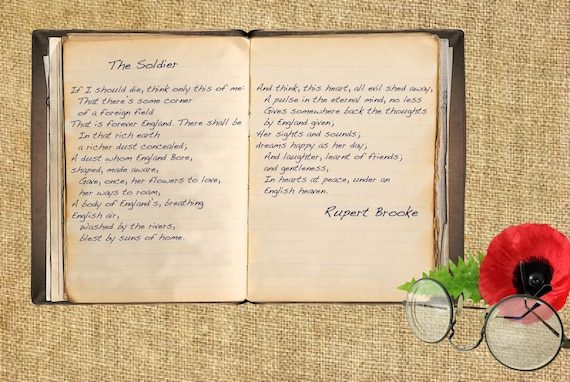 The Soldier
If I should die, think only this of me:
That there's some corner
of a foreign field
That is forever England. There shall be
In that rich earth
a richer dust concealed;
A dust whom England Bore,
shaped, made aware,
Gave, once, her flowers to love,
her ways to roam,
A body of England's, breathing
English air,
Washed by the rivers,
blest by suns of home.
And think, this heart, all evil shed away,
A pulse in the eternal mind, no less
Gives somewhere back the thoughts
by England given;
Her sights and sounds;
dreams happy as her day;
And laughter, learnt of friends;
and gentleness,
In hearts at peace, under an
English heaven.
Rupert Brooke